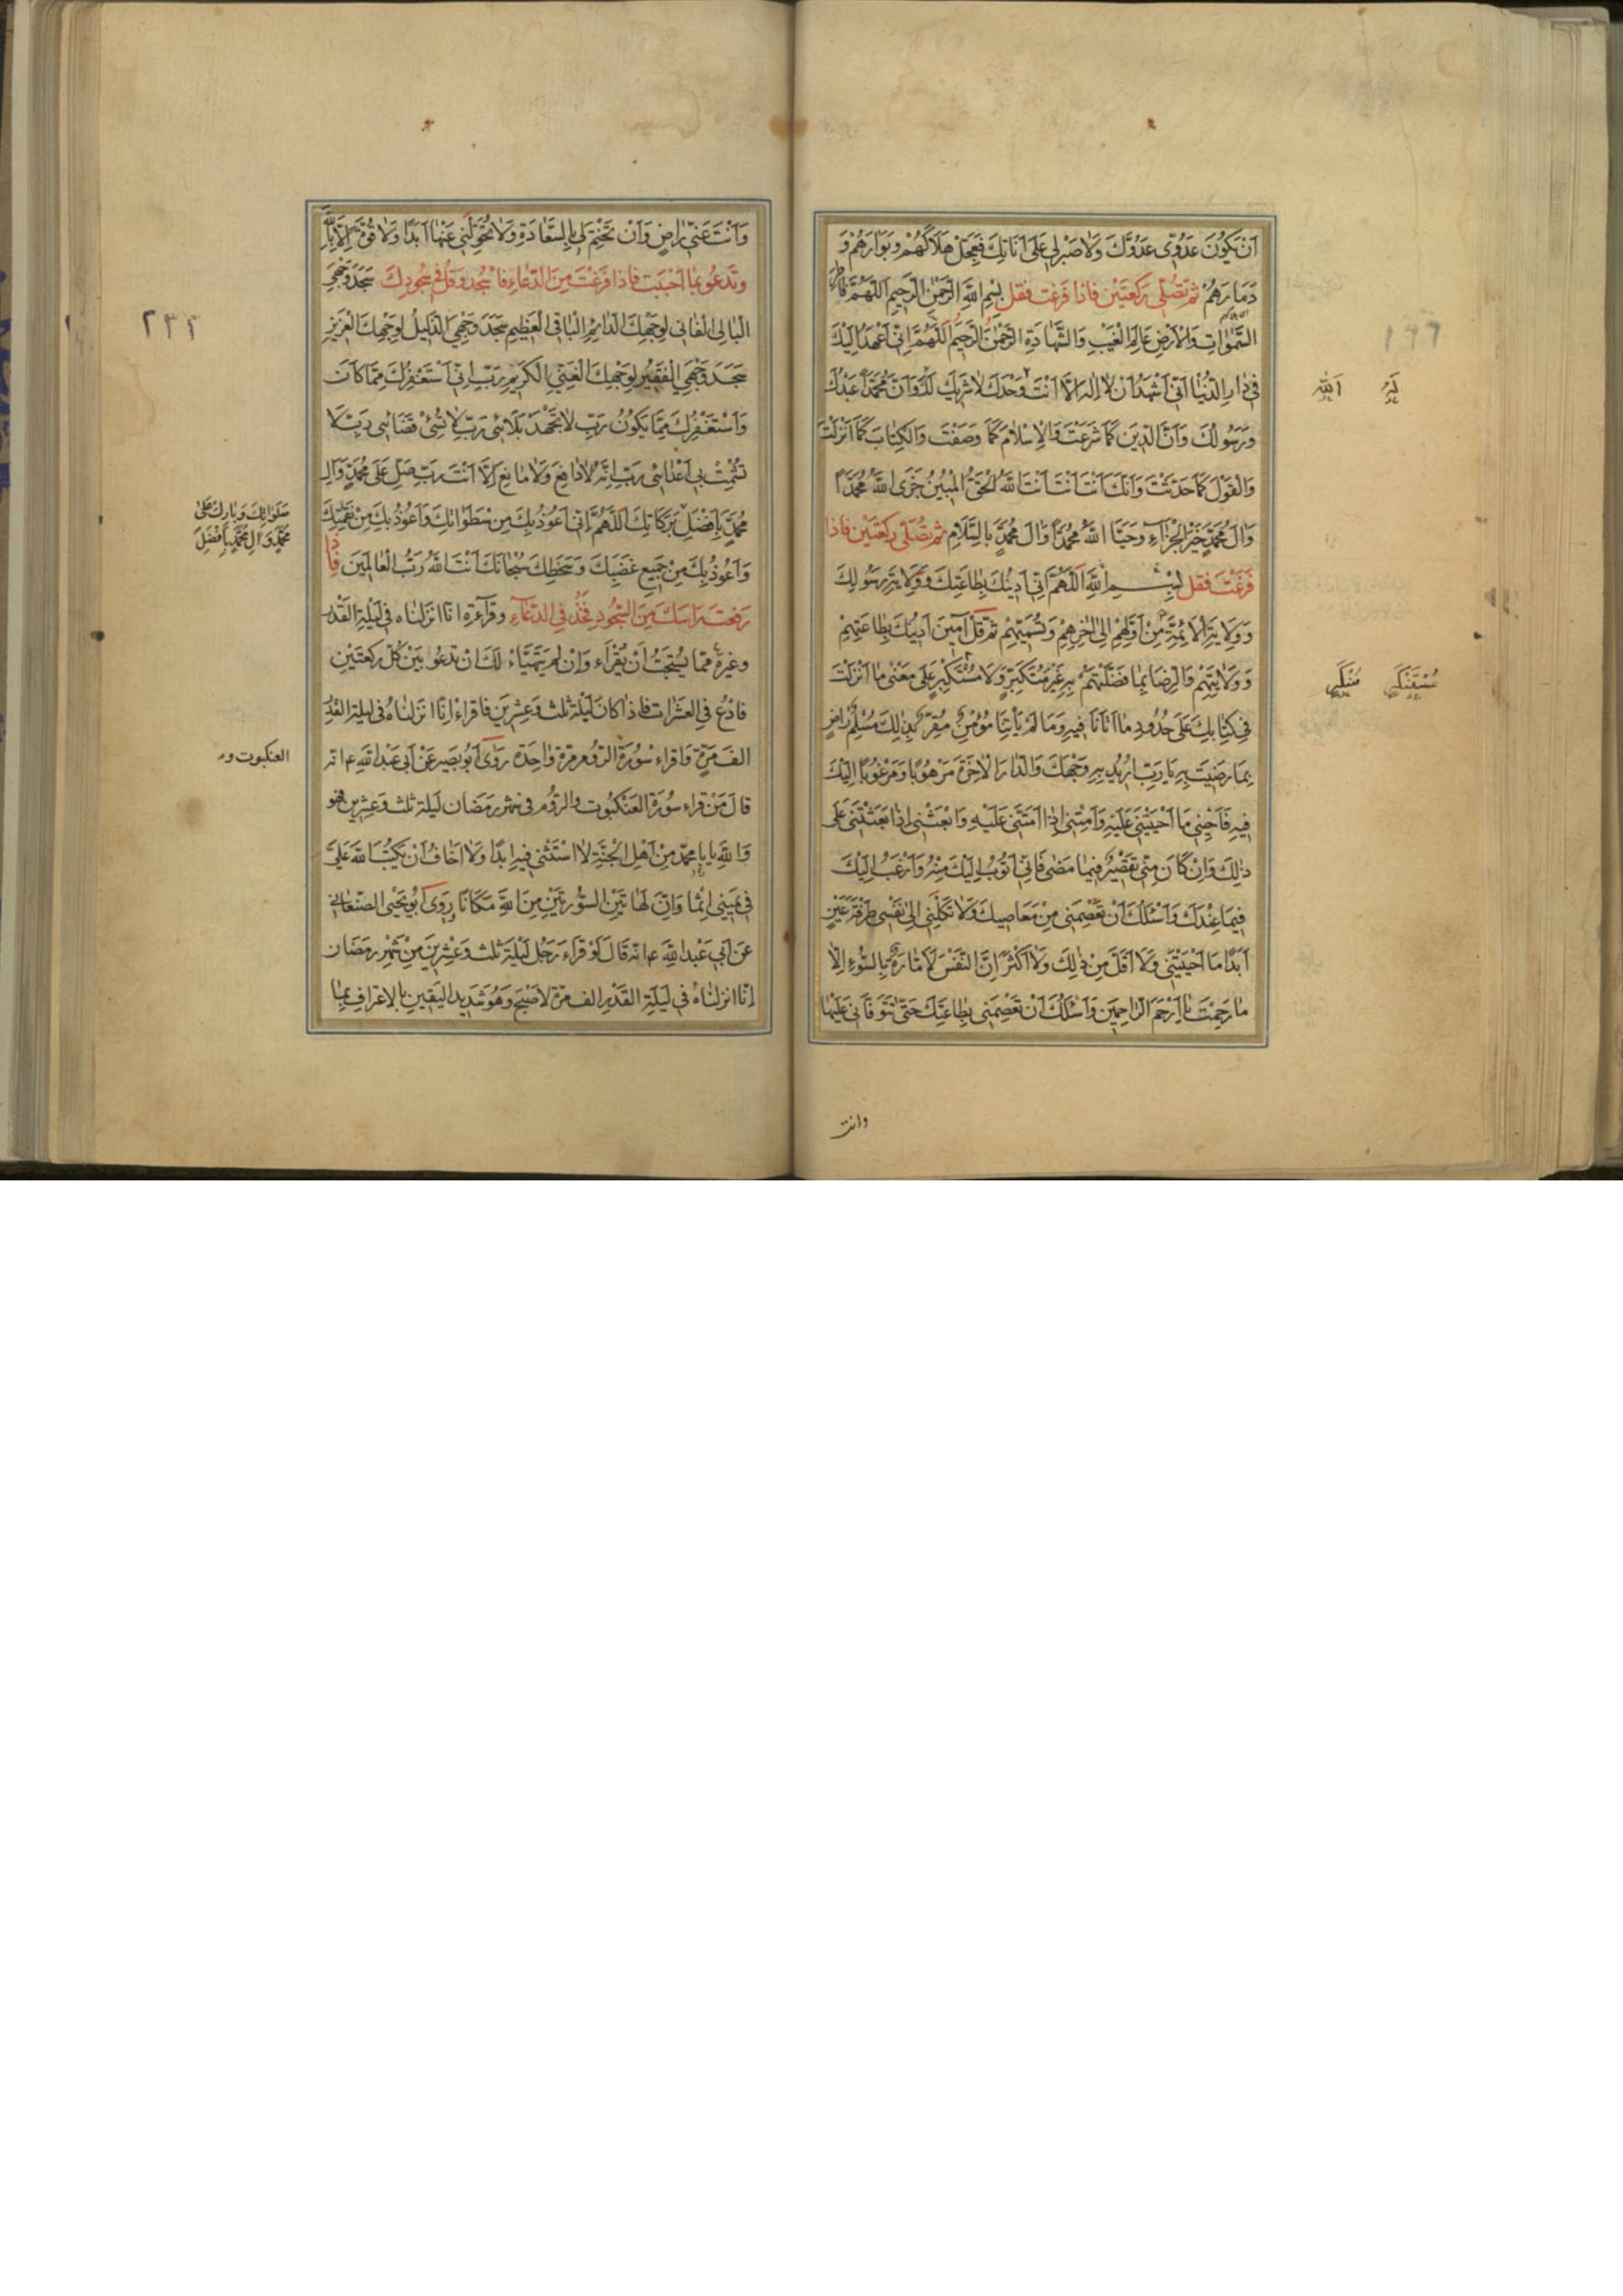 اَنْ يَكُونَ عَدُوّي عَدُوَّكَ وَلا صَبْرَ لي عَلى اَناتِكَ فَعَجِّلْ هَلاكَهُمْ وَبَوارَهُمْ وَ
دَمارَهُمْ ثم تُصَلّى رَكعتَيْن فاذا فَرَغتَ فقل بِسْمِ اللّهِ الرَّحْمنِ الرَّحيمِ اَللّهُمَّ فاطر
السَّمواتِ وَالاَرْضِ عالِمَ الْغَيْبِ وَالشَّهادَةِ الرَّحْمنَ الرَّحيمَ اَللّهُمَّ اِنّى اَعْهَدُ اِلَيْكَ
فى دارِ الدُّنْيا اَنّى اَشْهَدُ اَنْ لا اِلهَ اِلاّ اَنْتَ وَحْدَكَ لا شَريكَ لَكَ وَاَنَّ مُحَمَّداً عَبْدُكَ
وَرَسُولُكَ وَاَنَّ الدّينَ كَما شَرَعْتَ وَالاِسْلامَ كَما وَصَفْتَ وَالكِتابَ كَما اَنْزَلْتَ
وَالْقَوْلَ كَما حَدَّثْتَ وَاَنَّكَ اَنْتَ اَنْتَ اَنْتَ اللّهُ الْحَقُّ الْمُبينُ جَزَى اللّهُ مُحَمَّداً
وَالَ مُحَمَّدٍ خَيْرَ الْجَزآءِ وَحَيَّا اللّهُ مُحَمَّداً وَالَ مُحَمَّدٍ بِالسَّلامِ ثم تُصَلّى ركعَتَيْن فاذا
فَرَغْتَ فقل بِسْمِ اللّهِ اَللّهُمَّ اِنّى اَدينُكَ بِطاعَتِكَ وَوَلايَةِ رَسُولِكَ
وَوَلايَةِ الاَئِمَّةِ مِنْ اَوَّلِهِمْ اِلى اخِرِهِمْ وَتُسَمّيهِمْ ثُمَّ قُلْ آمينَ اَدينُكَ بِطاعَتِهِمْ
وَوَلايَتِهِمْ وَالرِّضا بِما فَضَّلْتَهُمْ بِهِ غَيْرَ مُتَكَبِّرٍ وَلا مُسْتَكْبِرٍ عَلى مَعْنى ما اَنْزَلْتَ
فى كِتابِكَ عَلى حُدُودِ ما اَتانا فيهِ وَما لَمْ يَأْتِنا مُؤْمِنٌ مُقِرٌّ بِذلِكَ مُسَلِّمٌ راضٍ
بِما رَضيتَ بِهِ يا رَبِّ اُريدُ بِهِ وَجْهَكَ وَالدّارَ الاخِرَةَ مَرْهُوباً وَمَرْغُوباً اِلَيْكَ
فيهِ فَاَحْيِنى ما اَحْيَيْتَنى عَلَيْهِ وَاَمِتْنى اِذا اَمَتَّنى عَلَيْهِ وَابْعَثْنى اِذا بَعَثْتَنى عَلى
ذلِكَ وَاِنْ كانَ مِنّى تَقْصيرٌ فيما مَضى فَاِنّى اَتُوبُ اِلَيْكَ مِنْهُ وَاَرْغَبُ اِلَيْكَ
فيما عِنْدَكَ وَاَسْئَلُكَ اَنْ تَعْصِمَنى مِنْ مَعاصيكَ وَلا تَكِلْنى اِلى نَفْسى طَرْفَةَ عَيْنٍ
اَبَداً ما اَحْيَيْتَنى وَلا اَقَلَّ مِنْ ذلِكَ وَلا اَكْثَرَ اِنَّ النَّفْسَ لاَمّارَةٌ بِالسُّوءِ اِلاّ
ما رَحِمْتَ يا اَرْحَمَ الرّاحِمينَ وَاَسْئَلُكَ اَنْ تَعْصِمَنى بِطاعَتِكَ حَتّى تَتَوَفّانى عَلَيْها
وانت
وَاَنْتَ عَنّى راضٍ وَاَنْ تَخْتِمَ لى بِالسَّعادَةِ وَلا تُحَوِّلَنى عَنْها اَبَداً وَلا قُوَّةَ اِلاّ بِاللّهِ
وتَدعُو بما اَحْبَبتَ فاذا فَرَغْتَ مِنَ الدّعاءِ فاسْجُد وقُل فى سُجُودِكَ سَجَدَ وَجْهِىَ
الْبالِى الْفانى لِوَجْهِكَ الدّائِمِ الْباقِى الْعَظيمِ سَجَدَ وَجْهِىَ الذَّليلُ لِوَجْهِكَ الْعَزيزِ
سَجَدَ وَجْهِىَ الْفَقيرُ لِوَجْهِكَ الْغَنِىِّ الْكَريمِ رَبِّ اِنّى اَسْتَغْفِرُكَ مِمّا كانَ
وَاَسْتَغْفِرُكَ مِمّا يَكُونُ رَبِّ لا تَجْهَدْ بَلائى رَبِّ لا تُسِئْ قَضائى رَبِّ لا
تُشْمِتْ بى اَعْدائى رَبِّ اِنَّهُ لا دافِعَ وَلا مانِعَ اِلاّ اَنْتَ رَبِّ صَلِّ عَلى مُحَمَّدٍ وَالِ
مُحَمَّدٍ بِاَفْضَلِ بَرَكاتِكَ اَللّهُمَّ اِنّى اَعُوذُ بِكَ مِنْ سَطَواتِكَ وَاَعُوذُ بِكَ مِنْ نَقِمَتِكَ
صَلَواتِكَ وَبارِكْ عَلى
مُحَمَّدٍ وَالِ مُحَمَّدٍ بِاَفْضَلِ
وَاَعُوذُ بِكَ مِنْ جَميعِ غَضَبِكَ وَسَخَطِكَ سُبْحانَكَ اَنْتَ اللّهُ رَبُّ الْعالَمينَ فاذا
رَفعتَ رَاسَكَ مِنَ السّجُودِ فَخُذْ فى الدّعآءِ وقرآءَةِ انّا انزلناه فى لَيْلةِ القَدْرِ
وغيره ممّا يُستحَبُّ اَن يُقْرَأَ وَاِن لم يَتَهَيَّأ لَكَ ان تدعُوَ بَيْنَ كُلِّ ركعَتَيْنِ
فادْعُ فى العَشَرات فاذا كانَ لَيْلَةُ ثلث وَعِشرينَ فاقراء انّا انزَلناهُ فى ليلة القَدْرِ
الفَ مَرّةٍ وَاقراء سُورَة الرّوم مرةً واحِدَةً رَوى اَبُو بَصير عَنْ اَبى عَبْداللّه ع انّه
العنكبوت و
قالَ مَنْ قراء سُورَة العَنكبُوت والرّوم فى شهر رمَضان لَيلة ثلث وَعِشرين فهو
وَاللّهِ يا با محمّد مِنْ اَهْلِ الْجَنَّةِ لا اَسْتَثْنى فيهِ اَبَداً وَلا اَخافُ اَنْ يَكتُبَ اللّهُ عَلَىَّ
فى يَمينى اِثماً وَاِنَّ لِهاتَيْن السّورتَيْنِ مِنَ اللّهِ مَكاناً رَوى اَبُو يَحْيى الصّنعانى
عَن اَبى عَبْداللّه ع انّه قالَ لَوْ قراءَ رَجُل لَيْلَة ثلث وَعِشْرينَ مِنْ شَهْر رمَضان
اِنّا انزلناهُ فى لَيلَةِ القَدْرِ الف مرّة لاَصْبَحَ وَهُوَ شَديد اليَقينِ بالاعترافِ بما
٢٣٢